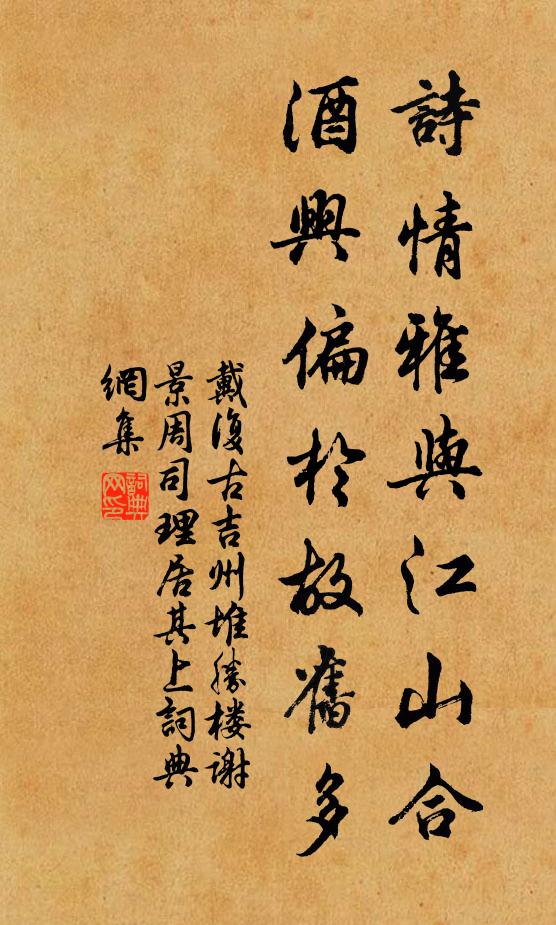 詩情雅與江山合
酒興偏於故舊多
戴復古吉州堆勝楼謝
景周司理居其上詞典
網集
詞典
网印